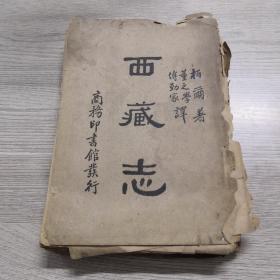 柏爾著
董之學
傅勤家譯
西藏志
商務印書館發行